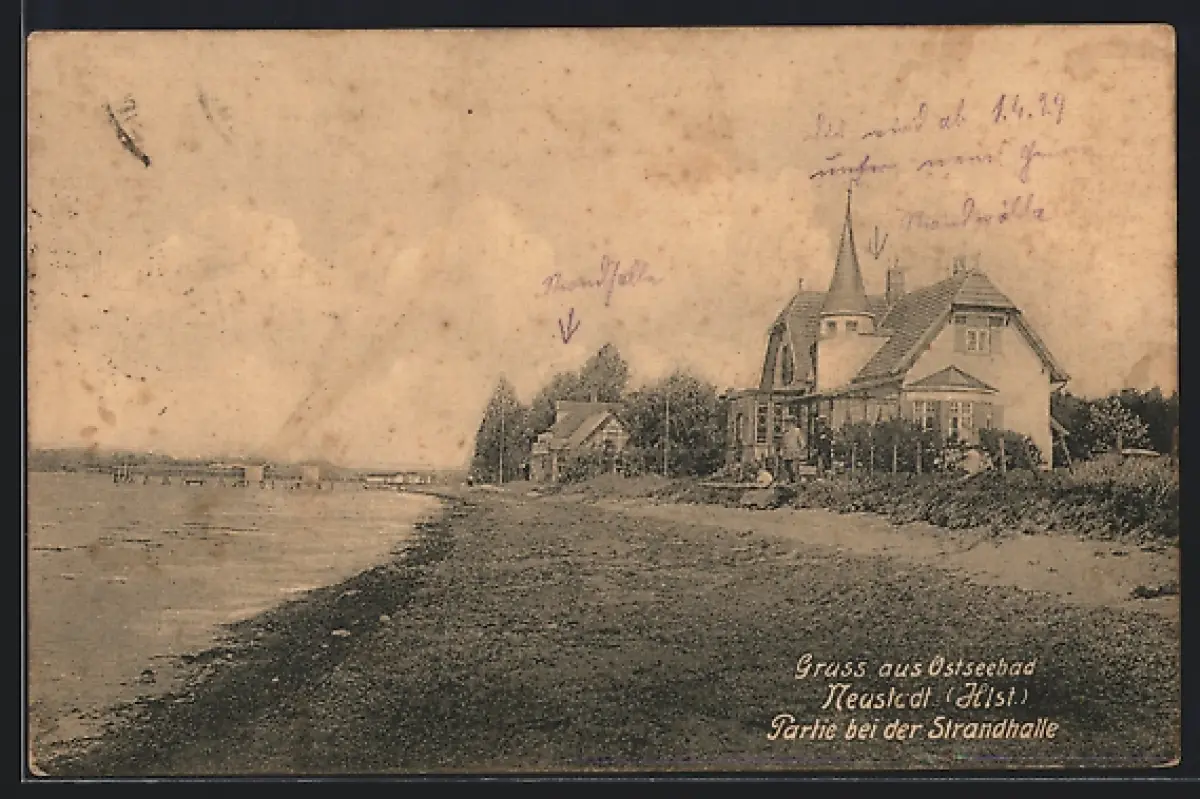 wird ab 1.4.29
unser neues Heim
Strandvilla
Strandhalle
Gruss aus Ostseebad
Neustadt (Hlst.)
Partie bei der Strandhalle